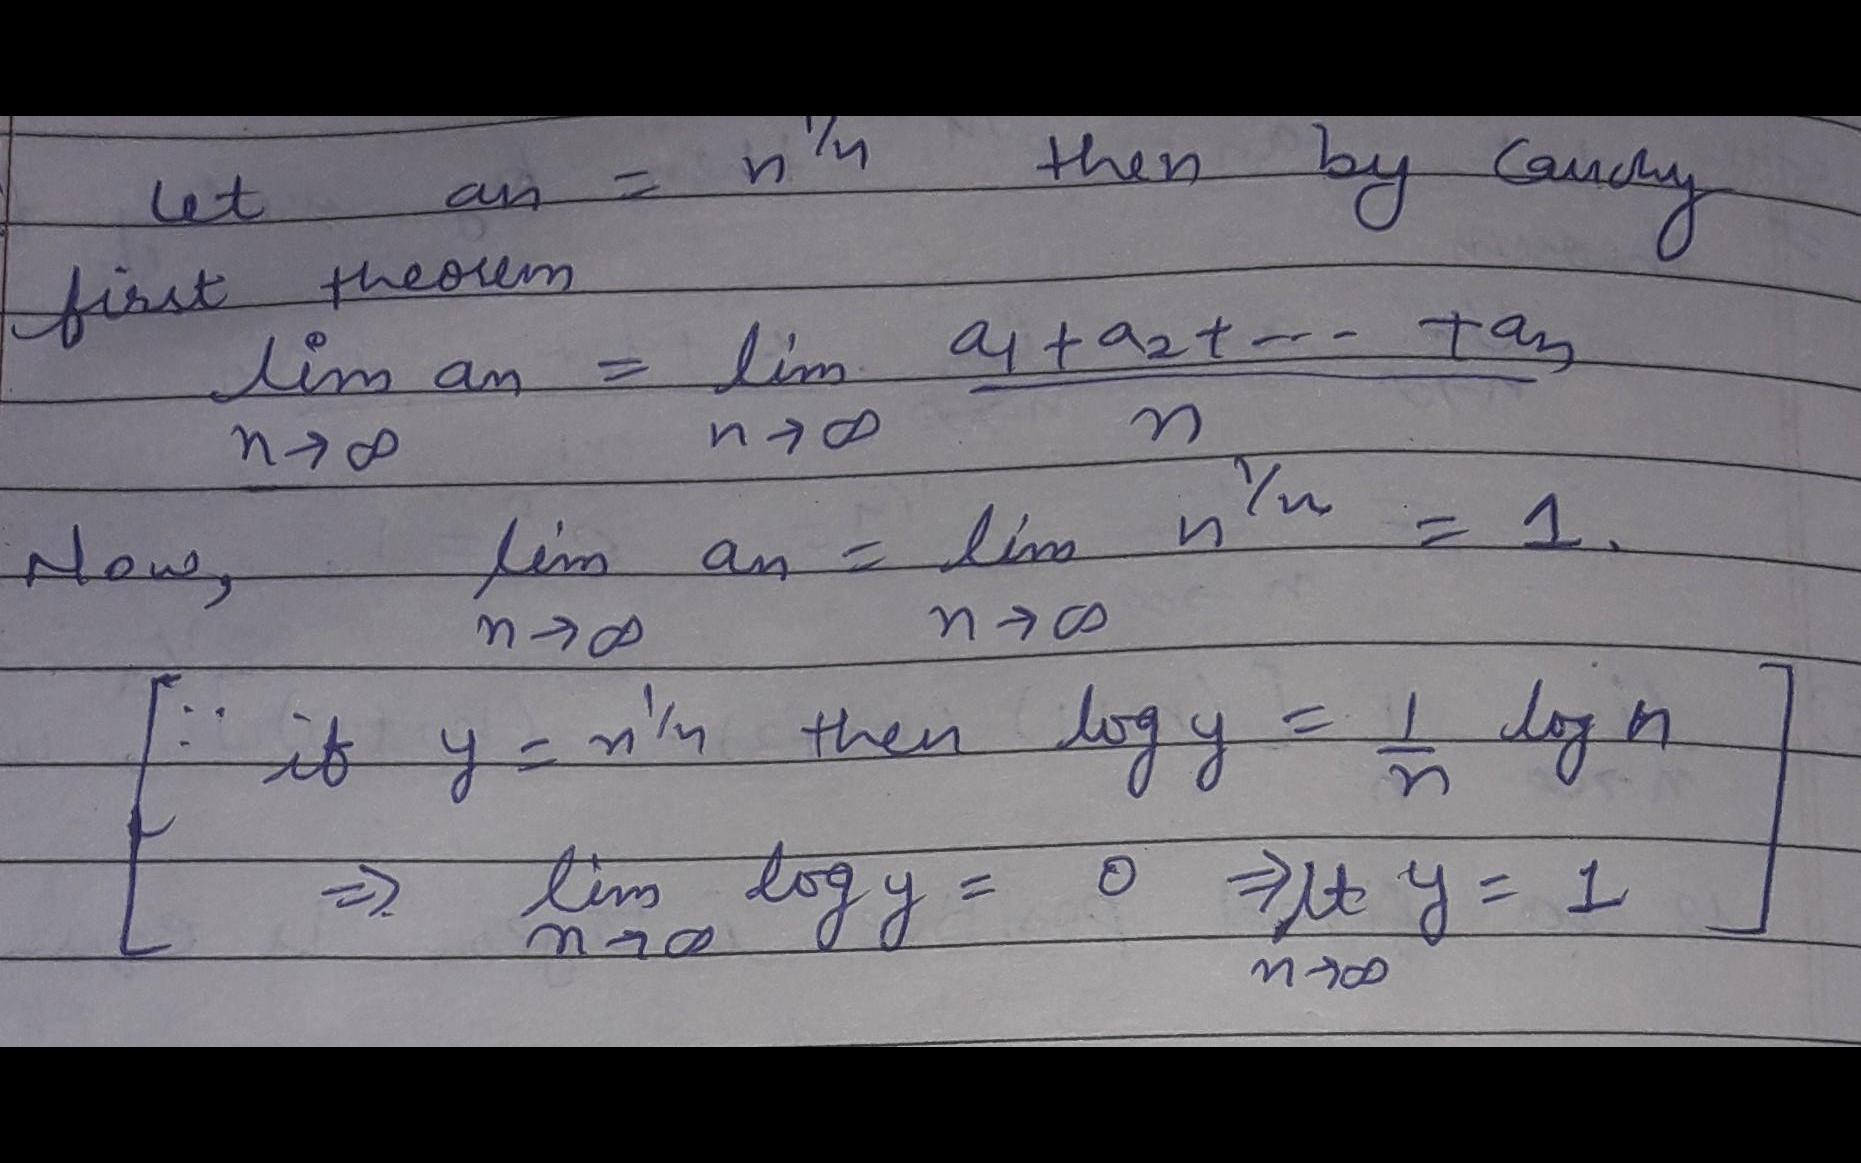 Let an = n^1/n then by Cauchy
first theorem
lim n→∞ an = lim n→∞ (a1 + a2 + --- + an)/n
Now, lim n→∞ an = lim n→∞ n^1/n = 1.
[∵ if y = n^1/n then log y = 1/n log n
⇒ lim n→∞ log y = 0 ⇒ lt n→∞ y = 1]